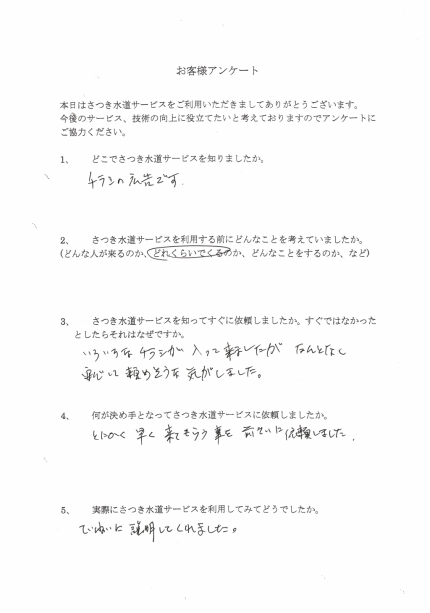 お客様アンケート
本日はさつき水道サービスをご利用いただきましてありがとうございます。
今後のサービス、技術の向上に役立てたいと考えておりますのでアンケートに
ご協力ください。
1、 どこでさつき水道サービスを知りましたか。
チラシの広告です.
2、 さつき水道サービスを利用する前にどんなことを考えていましたか。
(どんな人が来るのか、どれくらいでくるのか、どんなことをするのか、など)
3、 さつき水道サービスを知ってすぐに依頼しましたか。すぐではなかった
としたらそれはなぜですか。
いろいろな チラシが 入って 来ましたが なんとなく
安心して 頼めそうな 気がしました。
4、 何が決め手となってさつき水道サービスに依頼しましたか。
とにかく 早く 来てもらう 事を 依頼しました.
5、 実際にさつき水道サービスを利用してみてどうでしたか。
ていねいに 説明してくれました。